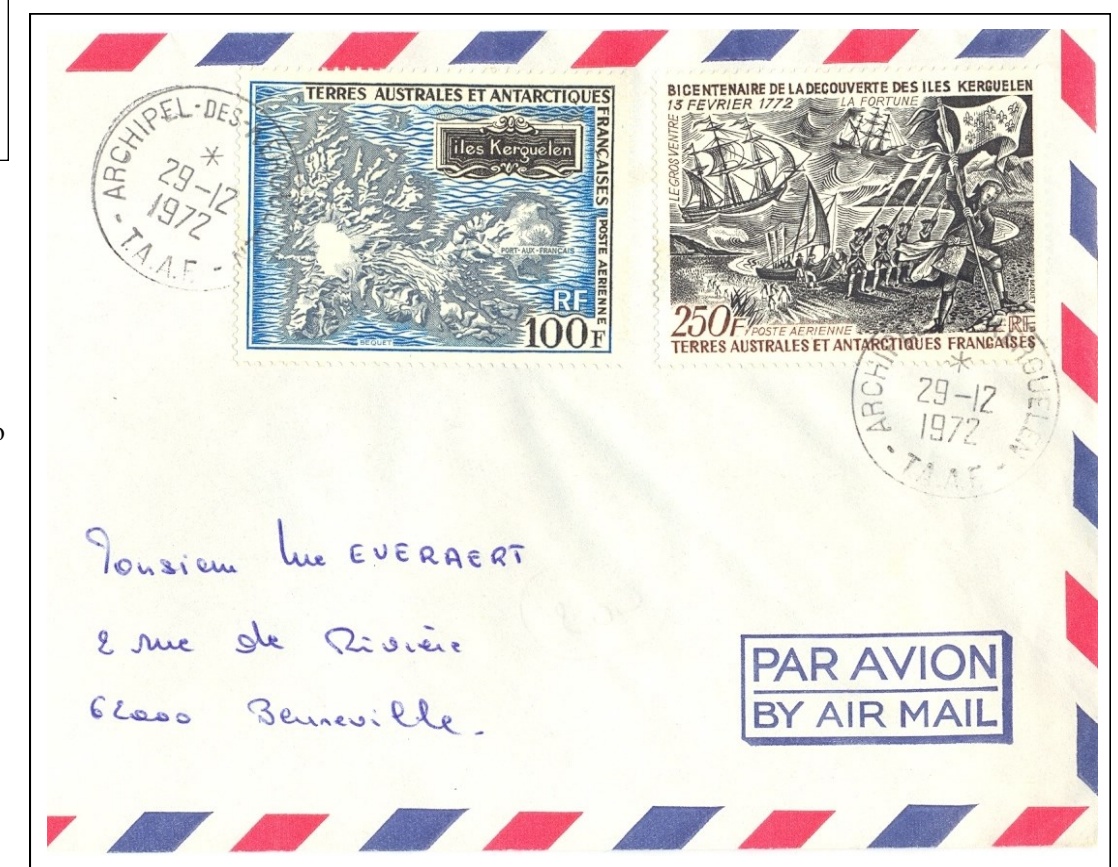 TERRES AUSTRALES ET ANTARCTIQUES
FRANÇAISES POSTE AERIENNE
îles Kerguelen
PORT-AUX-FRANÇAIS
RF
100F
BEQUET
BICENTENAIRE DE LA DECOUVERTE DES ILES KERGUELEN
13 FEVRIER 1772 LA FORTUNE
LE GROS VENTRE
250F POSTE AERIENNE RF
TERRES AUSTRALES ET ANTARCTIQUES FRANÇAISES
ARCHIPEL-DES-
*
29-12
1972
- T.A.A.F. -
ARCHI KERGUELEN
*
29-12
1972
- T.A.A.F. -
Monsieur Luc EVERAERT
2 rue de Rivière
62000 Beurreville.
PAR AVION
BY AIR MAIL